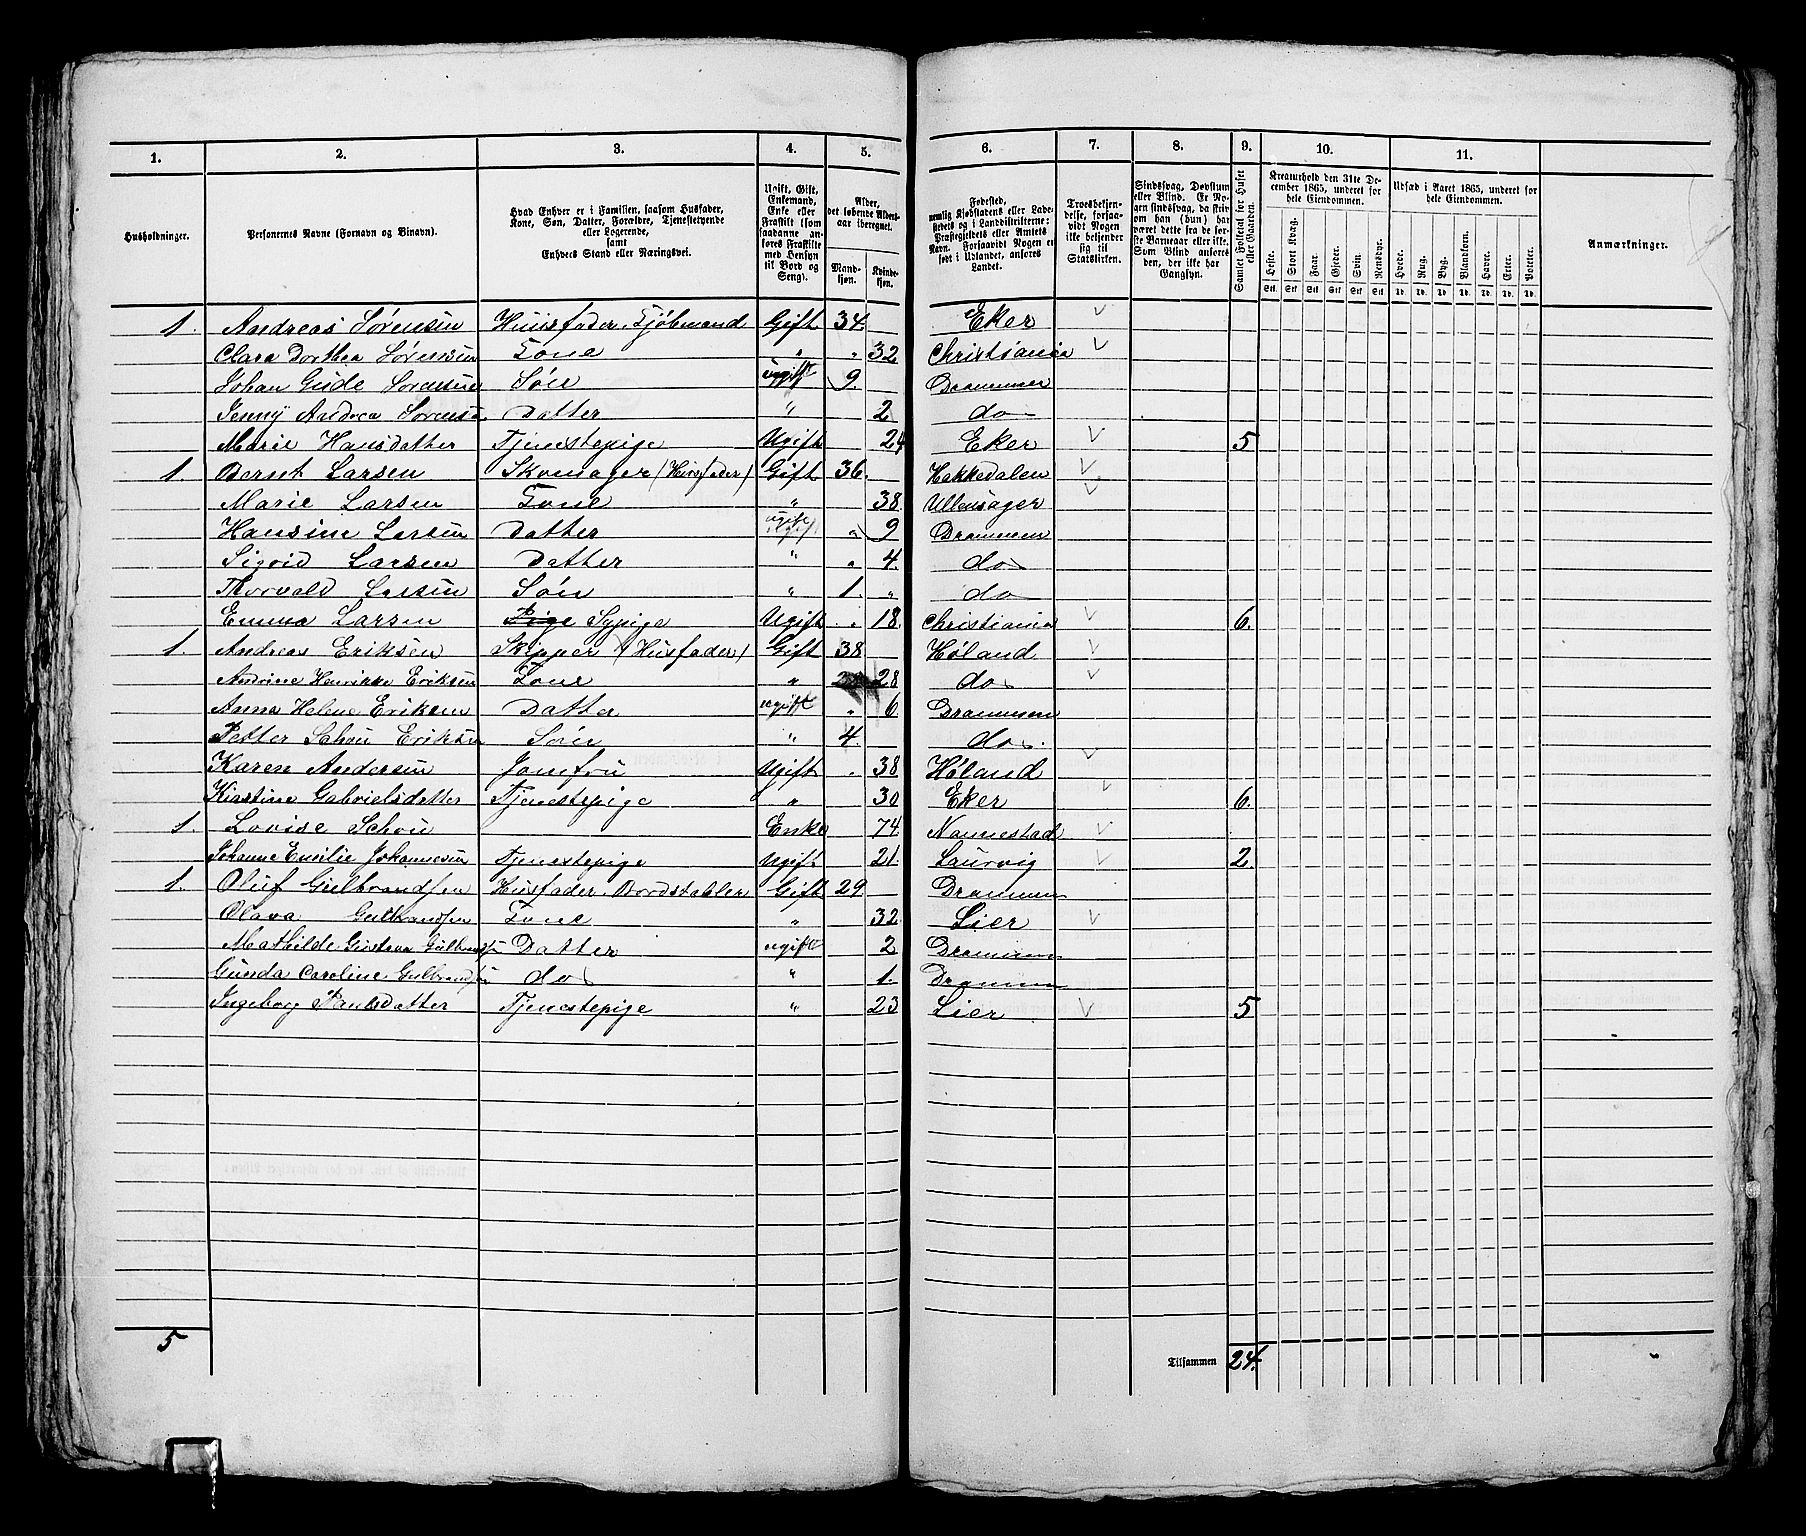 1. 2. 3. 4. 5. 6. 7. 8. 9. 10. 11.
Husholdninger.
Personernes Navne (Fornavn og Binavn).
Hvad Enhver er i Familien, saasom Husfader, Kone, Søn, Datter, Forældre, Tjenestetyende eller Logerende, samt Enhvers Stand eller Næringsvei.
Ugift, Gift, Enkemand, Enke eller Fraskilt (som saadanne anføres Fraskilte med Hensyn til Bord og Seng).
Alder, det løbende Alders-aar iberegnet.
Mand-kjøn. Kvinde-kjøn.
Fødested, nemlig Kjøbstadens eller Ladestedets og i Landdistrikterne: Præstegjeldets eller Amtets Navn. Forsaavidt Nogen er født i Udlandet, anføres Landet.
Troesbekjendelse, forsaavidt Nogen ikke bekjender sig til Statskirken.
Sindssvag, Døvstum eller Blind. Er Nogen sindssvag, da skriv om han (hun) har været dette fra de første Barneaar eller ikke. Som Blind anføres den, der ikke har Gangsyn.
Samlet Folketal for Huset eller Gaarden.
Kreaturhold den 31te December 1865, underet for hele Eiendommen.
Heste. Stort Kvæg. Faar. Gjeder. Svin. Rensdyr.
Udsæd i Aaret 1865, underet for hele Eiendommen.
Hvede. Rug. Byg. Blandkorn. Havre. Erter. Poteter.
Anmærkninger.
1. Andreas Sørensen Huusfader, Gift 34. Eker
Clara Dorthea Sørensen Kone " " 32 Christiania
Johan Gude Sørensen Søn ugift 9. Drammen
Jenny Andrea Sørensen Datter " 2 do
Marie Hansdatter Tjenestepige Ugift 24 Eker 5
1. Bernt Larsen Skomager (Husfader) Gift 36. Hakkedalen
Marie Larsen Kone " 38. Ullensager
Hansine Larsen Datter ugift " 9 Drammen
Sigvid Larsen Datter " " 4. do
Thorvald Larsen Søn " 1. " do
Emma Larsen Pige Sypige Ugift " 18. Christiania 6.
1. Andreas Eriksen Skipper (Husfader) Gift 38 Høland
Andrine Henrikke Eriksen Kone " 28 do
Anna Helene Eriksen Datter ugift " 6. Drammen
Petter Schou Eriksen Søn " 4. do.
Karen Andersen Jomfru Ugift " 38 Høland
Kirstine Gabrielsdatter Tjenestepige " 30 Eker 6.
1. Lovise Schou Enke 74 Nannestad
Johanne Emilie Johannesen Tjenestepige Ugift 21. Laurvig 2.
1. Oluf Gulbrandsen Husfader, Bordstabler Gift 29 Drammen
Olava Gulbrandsen Kone " 32 Lier
Mathilde Gustava Gulbrandsen Datter ugift 2 Drammen
Gunda Caroline Gulbrandsen do " 1. Drammen
Ingeborg Paulsdatter Tjenestepige " 23 Lier 5
5 Tilsammen 24.